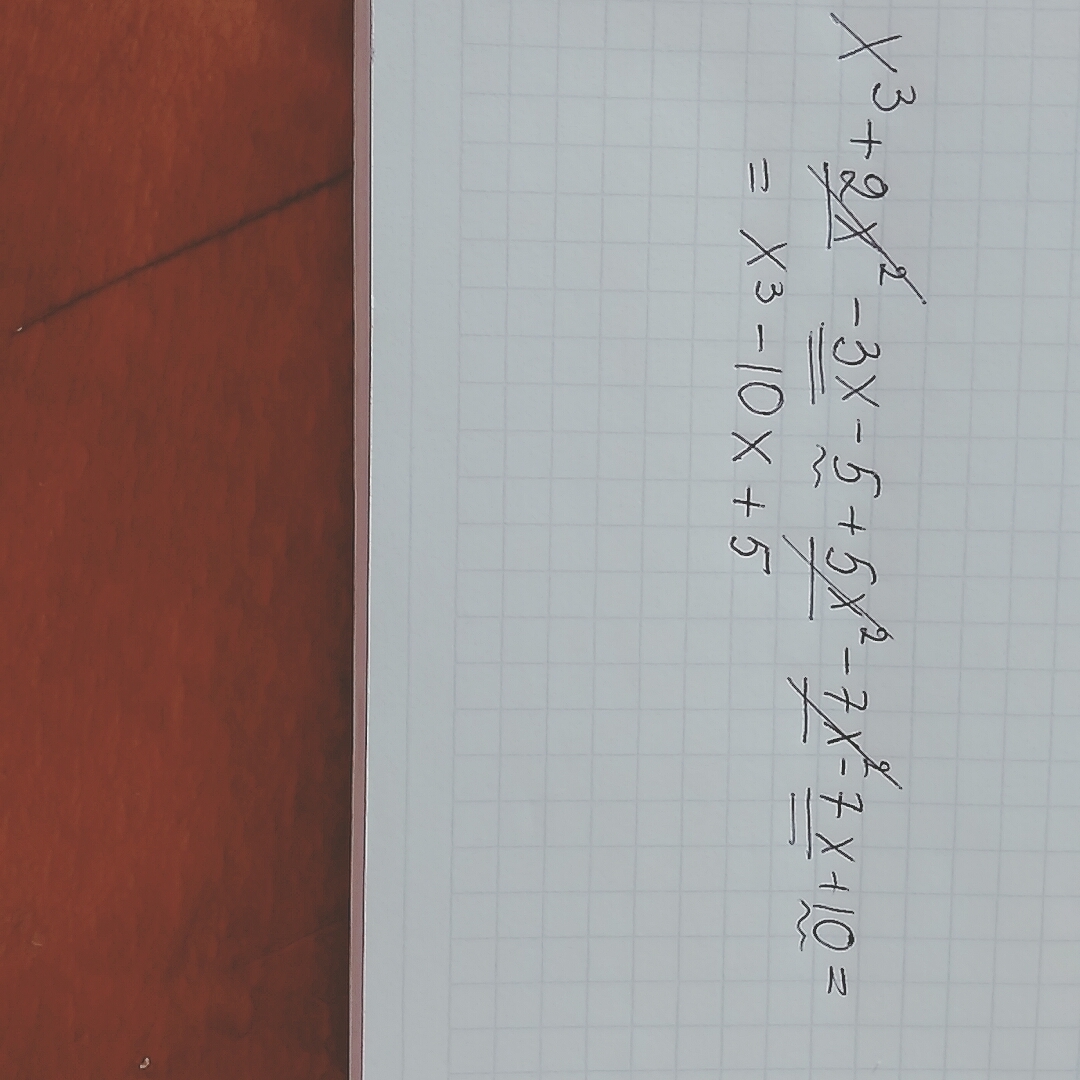 x³ + 2x² - 3x - 5 + 5x² - 7x² - 7x + 10 =
= x³ - 10x + 5